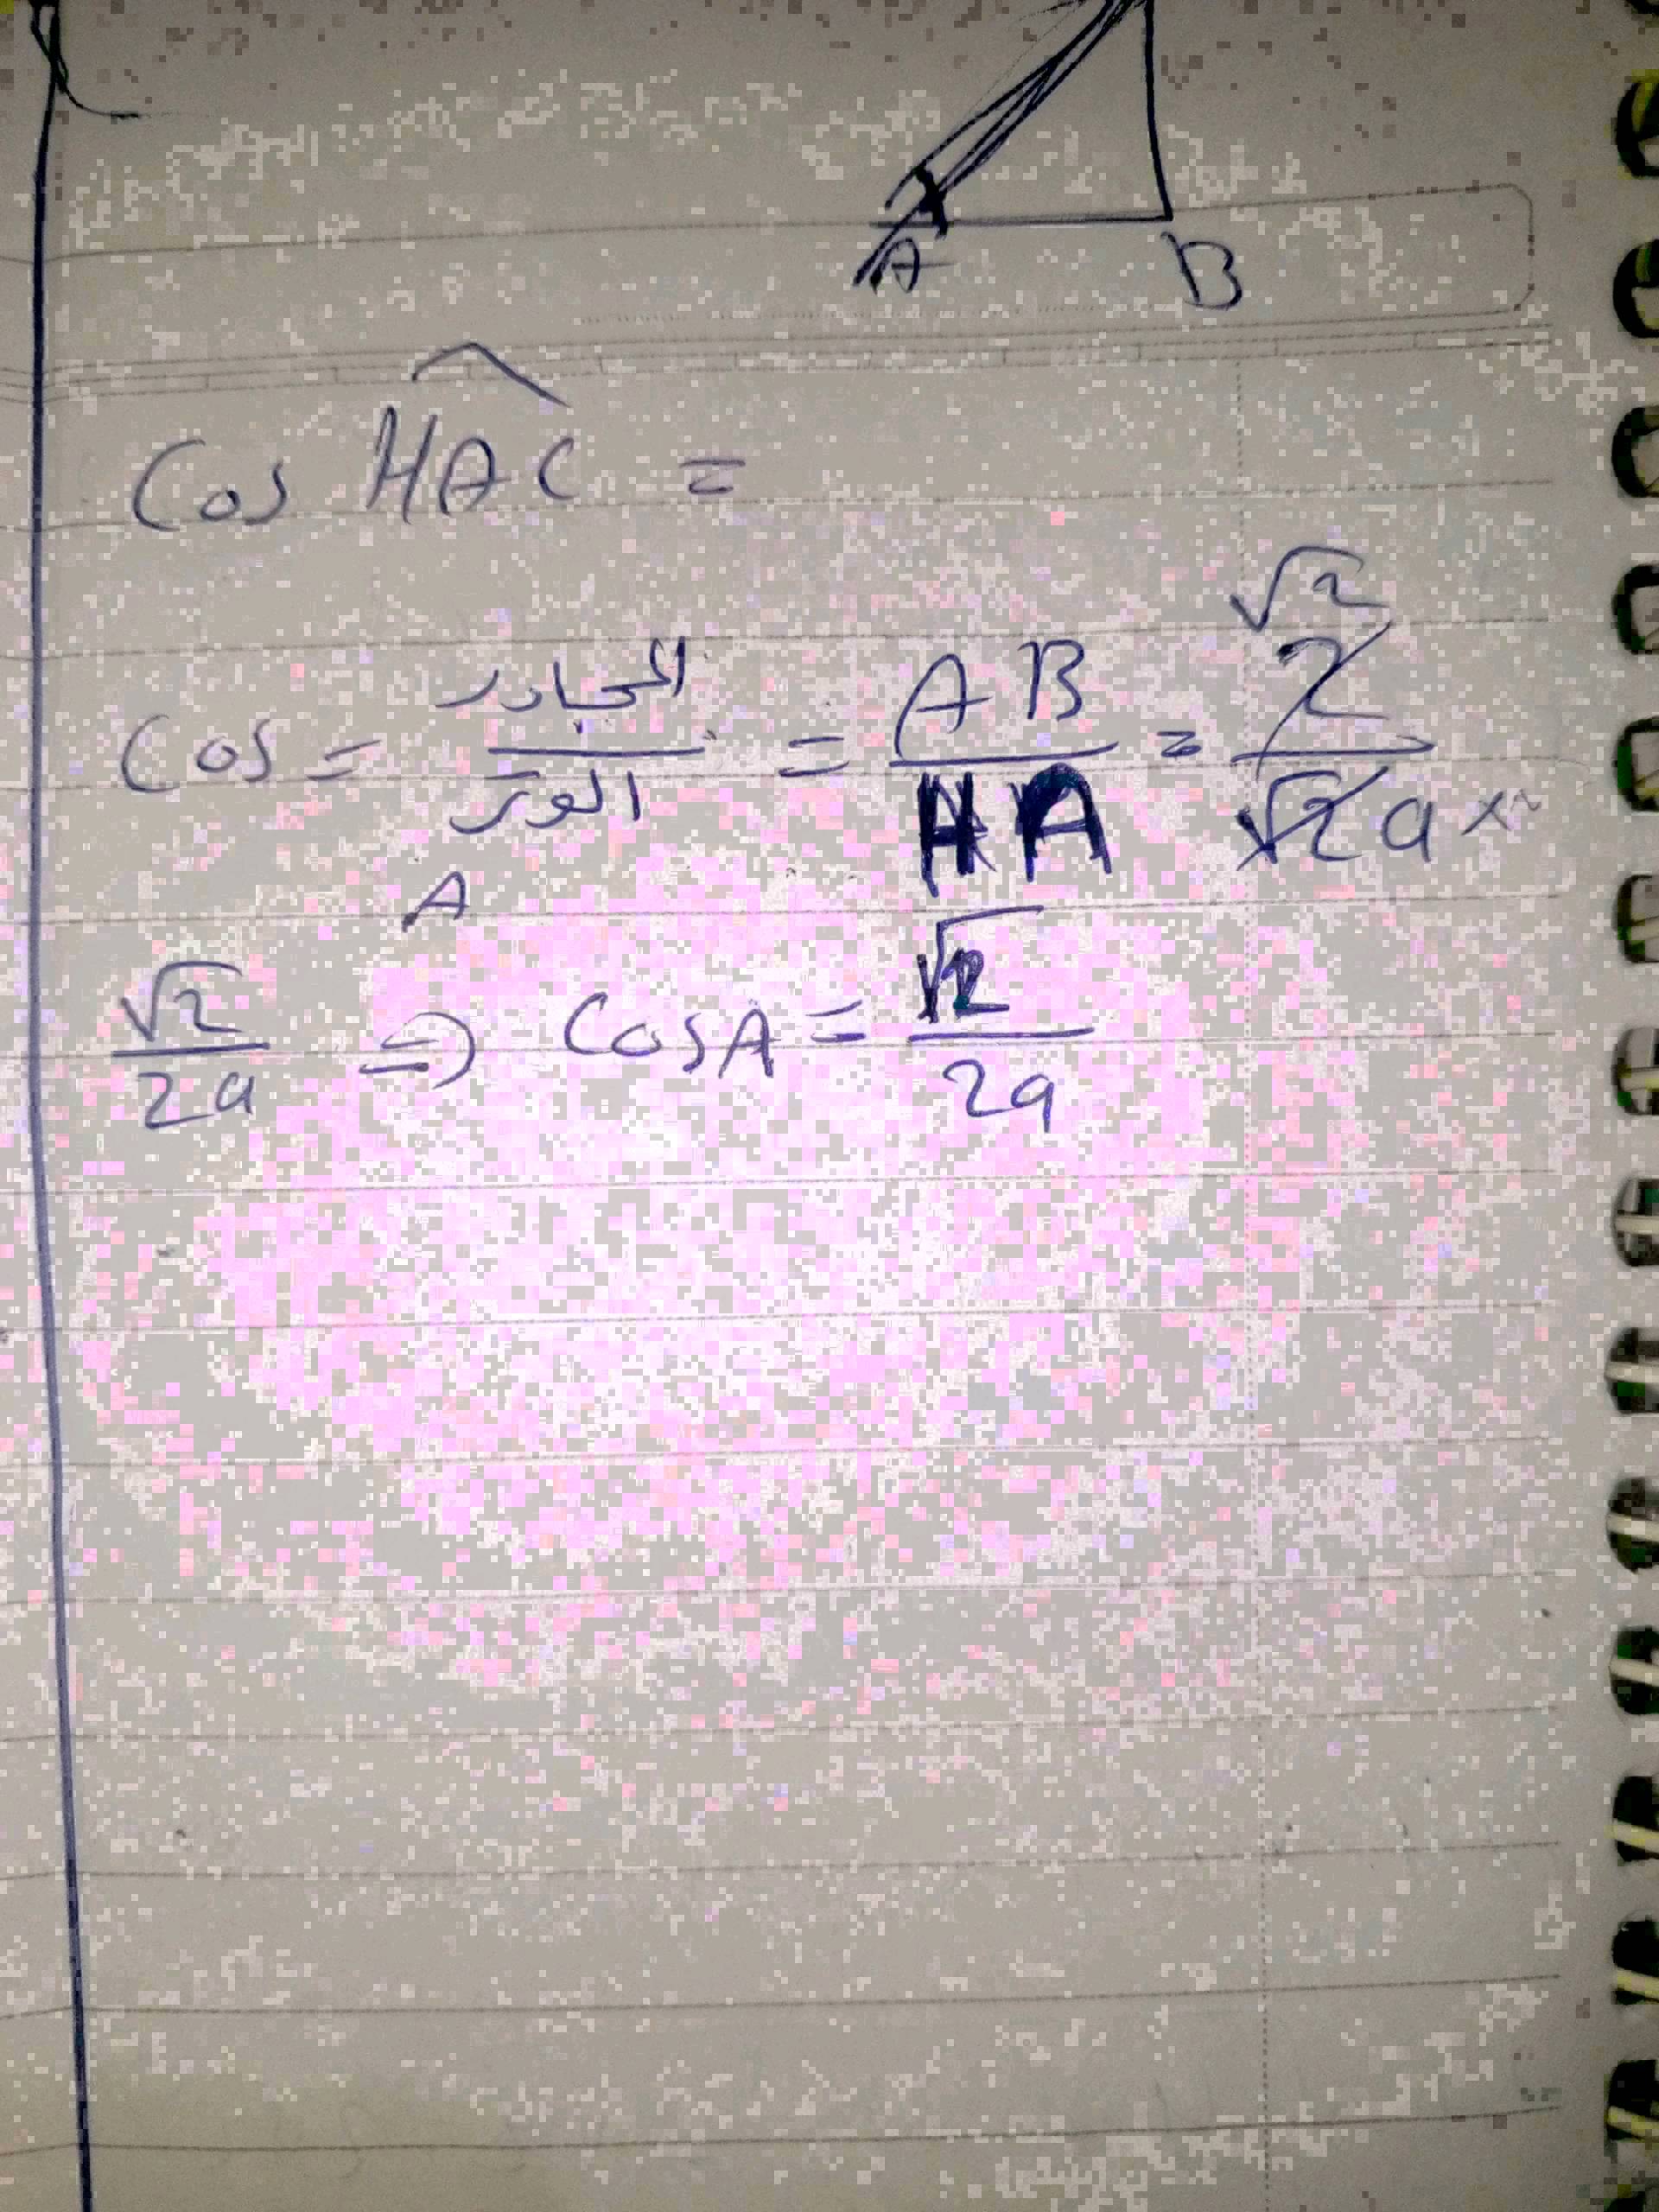 A B
Cos HAC =
Cos = المجاور / الوتر = AB / HA = √2 2 / √2 a x²
A
√2 / 2a => Cos A = √2 / 2a